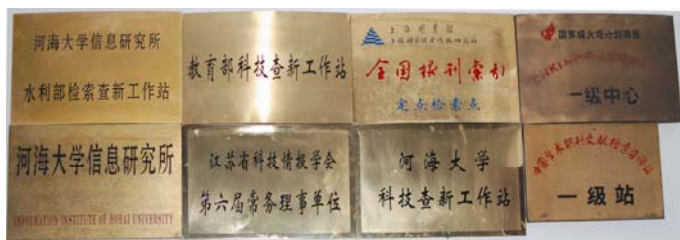 河海大学信息研究所
水利部检索查新工作站
教育部科技查新工作站
上海图书馆
全国报刊索引
定点检索点
国家级火炬计划项目
一级中心
河海大学信息研究所
INFORMATION INSTITUTE OF HOHAI UNIVERSITY
江苏省科技情报学会
第六届常务理事单位
河海大学
科技查新工作站
一级站